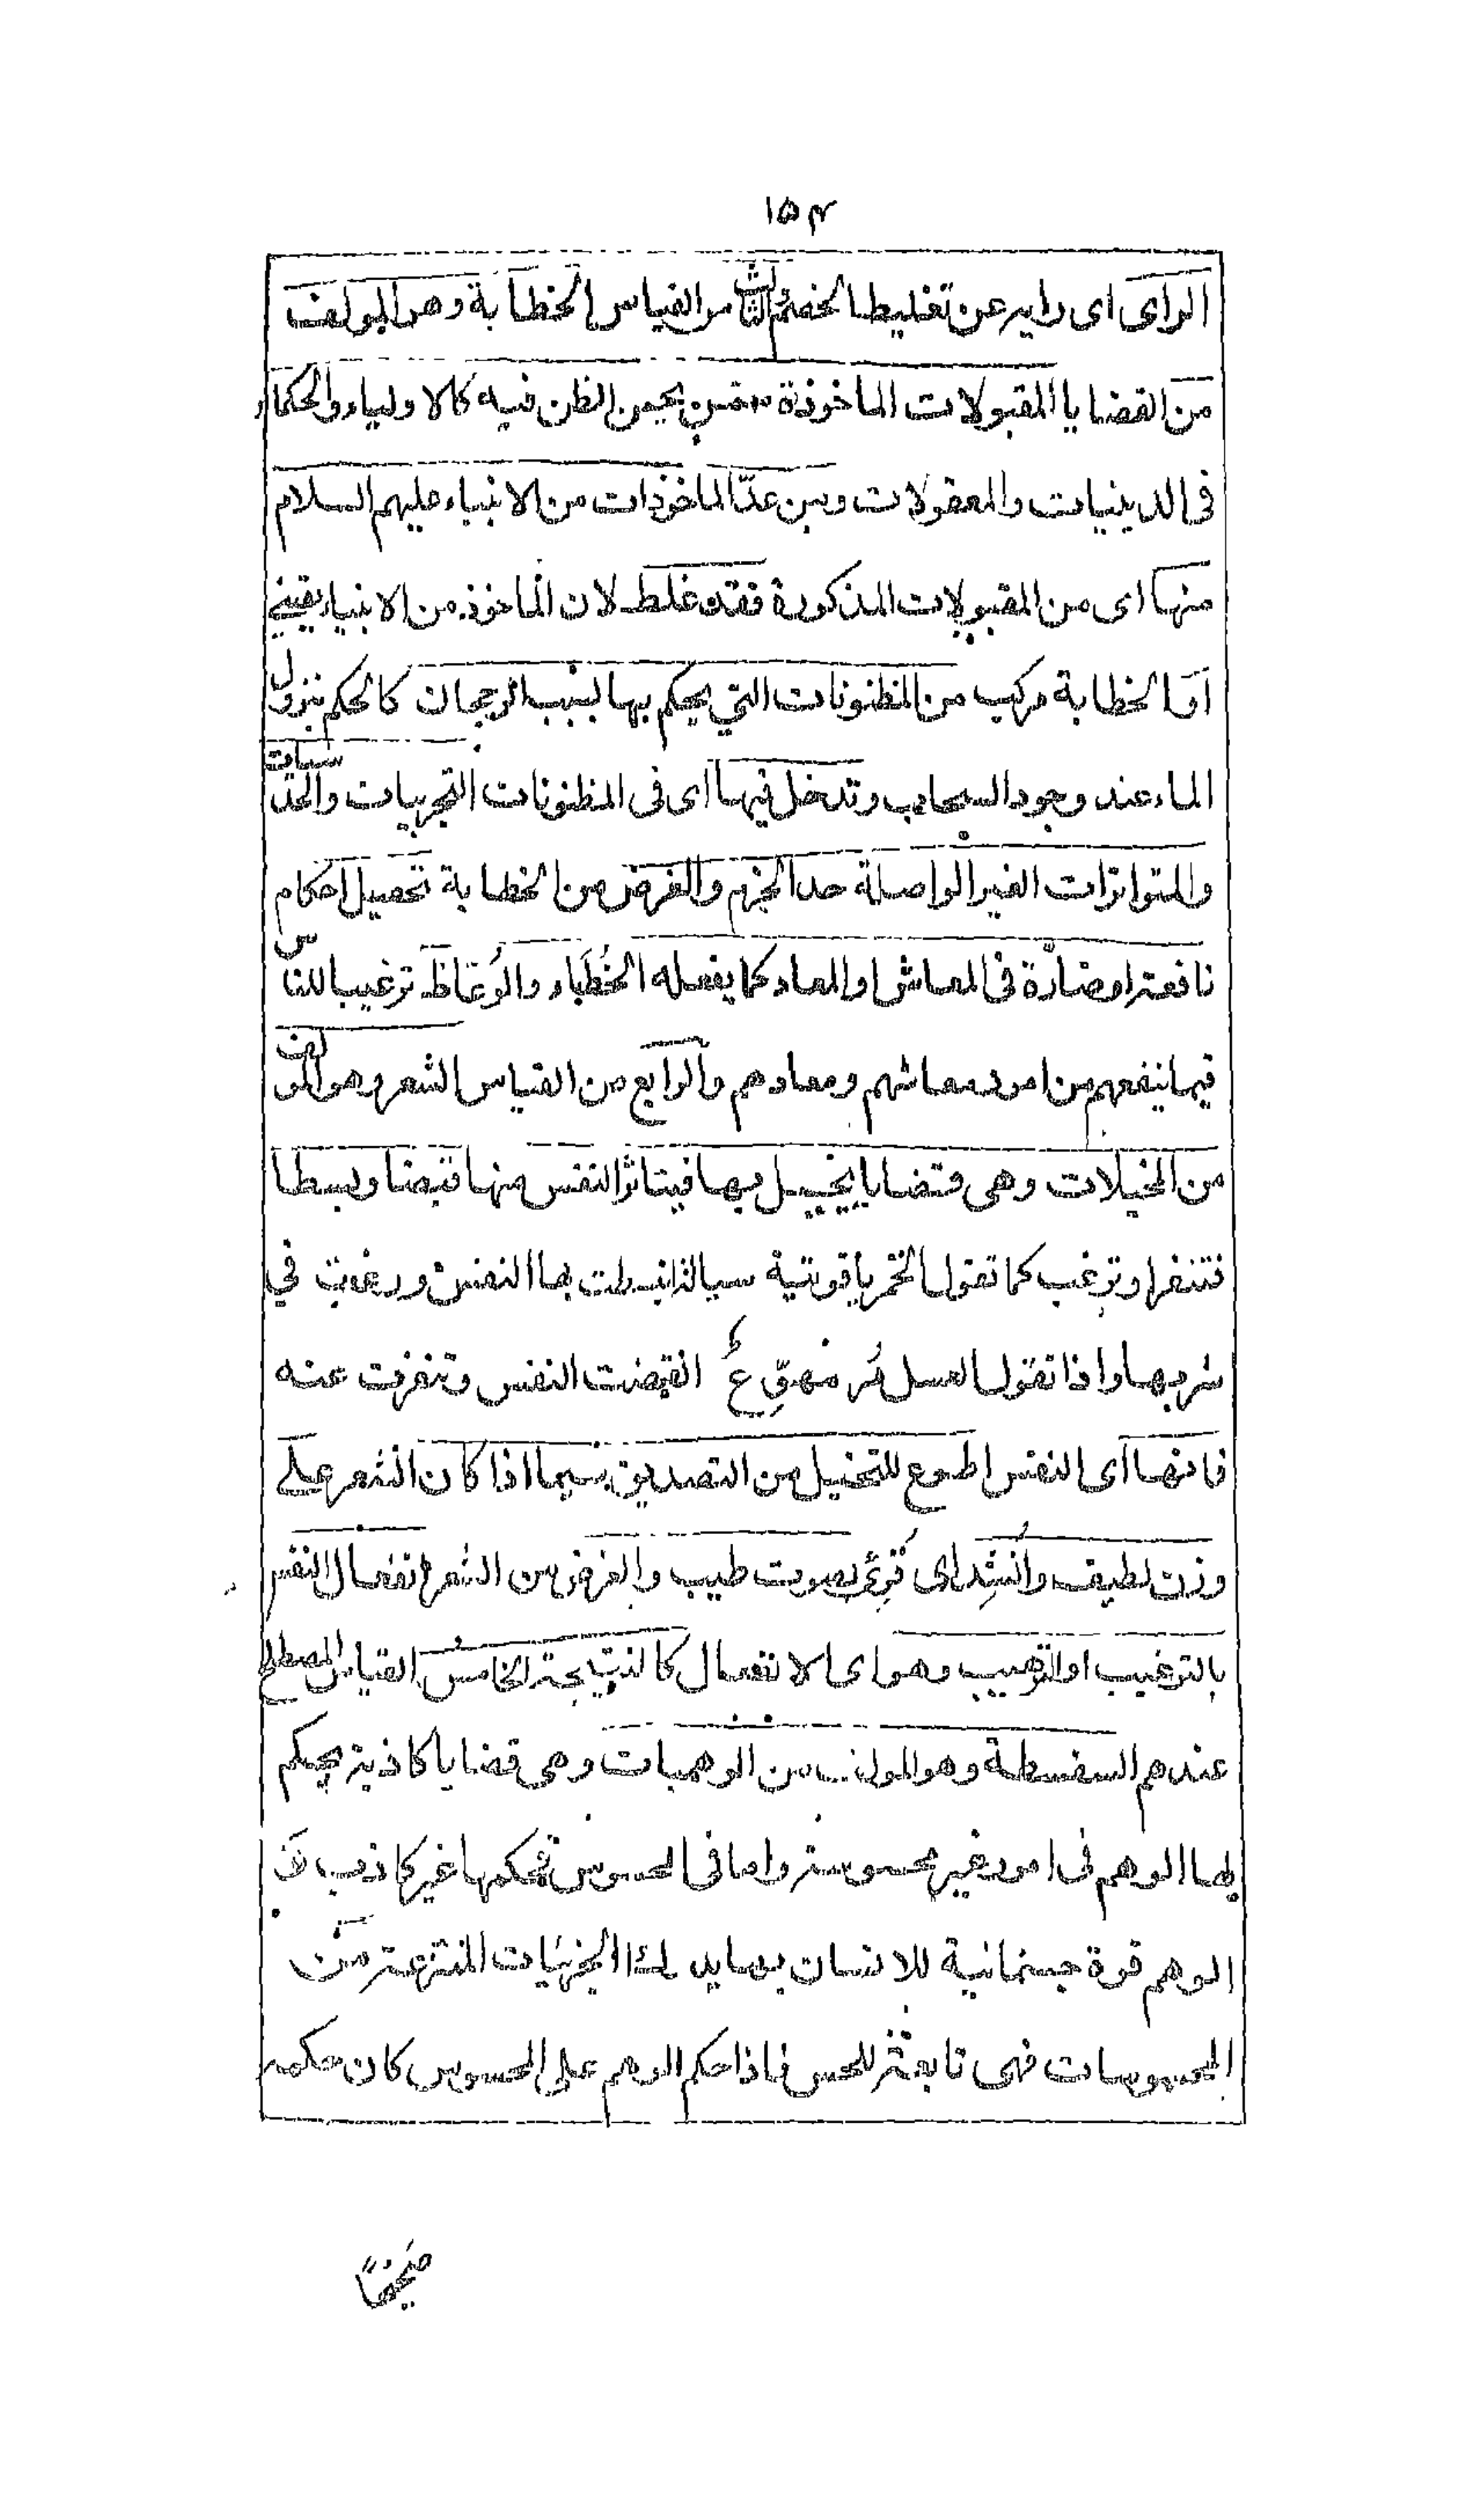 ١٥٣
الراى اى رايه عن تغليط الخصم الثالث من القياس الخطابة وهو المولف
من القضايا المقبولات الماخوذة ممن يحسن الظن فيه كالاولياء والحكماء
فى الدينيات والمعقولات ومن عدّ الماخوذات من الانبياء عليهم السلام
منها اى من المقبولات المذكورة فقد غلط لان الماخوذ من الانبياء يقيني
اوّ الخطابة مركب من المظنونات التي يحكم بها لسبب الرجحان كالحكم بنزول
الماء عند وجود السحاب وتدخل فيها اى فى المظنونات التجربيات والحدسيات
والمتواترات الغير الواصلة حد الجزم والغرض من الخطابة تحصيل احكام
نافعة او ضارّة فى المعاش او المعاد كما يفعله الخُطَباء والوُعّاظ ترغيبا للناس
فيما ينفعهم من امور معاشهم ومعادهم والرابع من القياس الشعر وهو المولف
من المخيلات وهى قضايا يخييل بها فيتاثر النفس منها قبضا وبسطا
فتنفر او ترغب كما تقول الخمر ياقوتية سيالة انبسطت بها النفس ورغبت في
شربها واذا تقول العسل مُر مهوّعُ انقبضت النفس وتنفرت عنه
فانها اى النفس اطوع للتخييل من التصديق سيما اذا كان الشعر على
وزن لطيف وانُشِد اى قُرِئَ بصوت طيب والغرض من الشعر انفعال النفس
بالترغيب او الترهيب وهو اى الانفعال كالنتيجة الخامس القياس المصطلح
عندهم السفسطة وهو المولف من الوهميات وهى قضايا كاذبة يحكم
بها الوهم فى امور غير محسوسة واما فى المحسوس فحكمها غير كاذب لان
الوهم قوة جسمانية للانسان بها يدرك الجزئيات المنتزعة من
المحسوسات فهى تابعة للحس فاذا حكم الوهم على المحسوس كان حكمه
صحيحًا